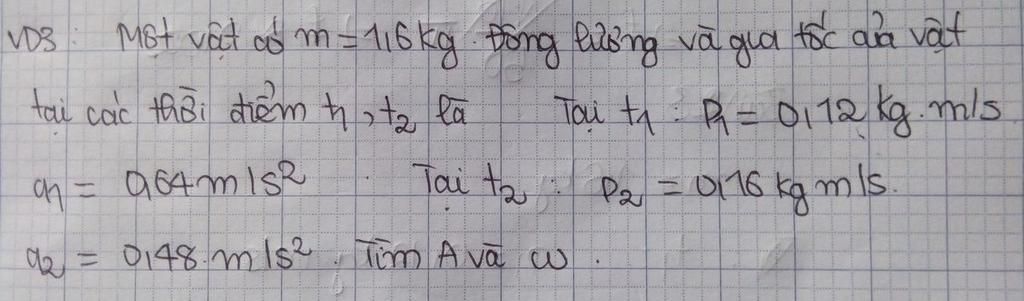 VD3: Một vật có m = 1,6 kg. Động lượng và gia tốc của vật
tại các thời điểm t1, t2 là Tại t1: P1 = 0,12 kg.m/s
a1 = 0,64 m/s2. Tại t2: P2 = 0,16 kg m/s.
a2 = 0,48 m/s2. Tìm A và ω.